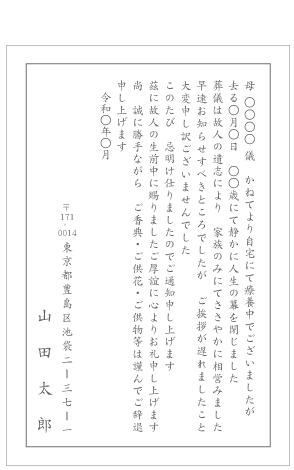 母 〇〇〇〇 儀 かねてより自宅にて療養中でございましたが
去る〇月〇日 〇〇歳にて静かに人生の幕を閉じました
葬儀は故人の遺志により 家族のみにてささやかに相営みました
早速お知らせすべきところでしたが ご挨拶が遅れましたこと
大変申し訳ございませんでした
このたび 忌明け仕りましたのでご通知申し上げます
茲に故人の生前中に賜りましたご厚誼に心よりお礼申し上げます
尚 誠に勝手ながら ご香典・ご供花・ご供物等は謹んでご辞退
申し上げます
令和〇年〇月
〒171-0014
東京都豊島区池袋二ー三七ー一
山田太郎